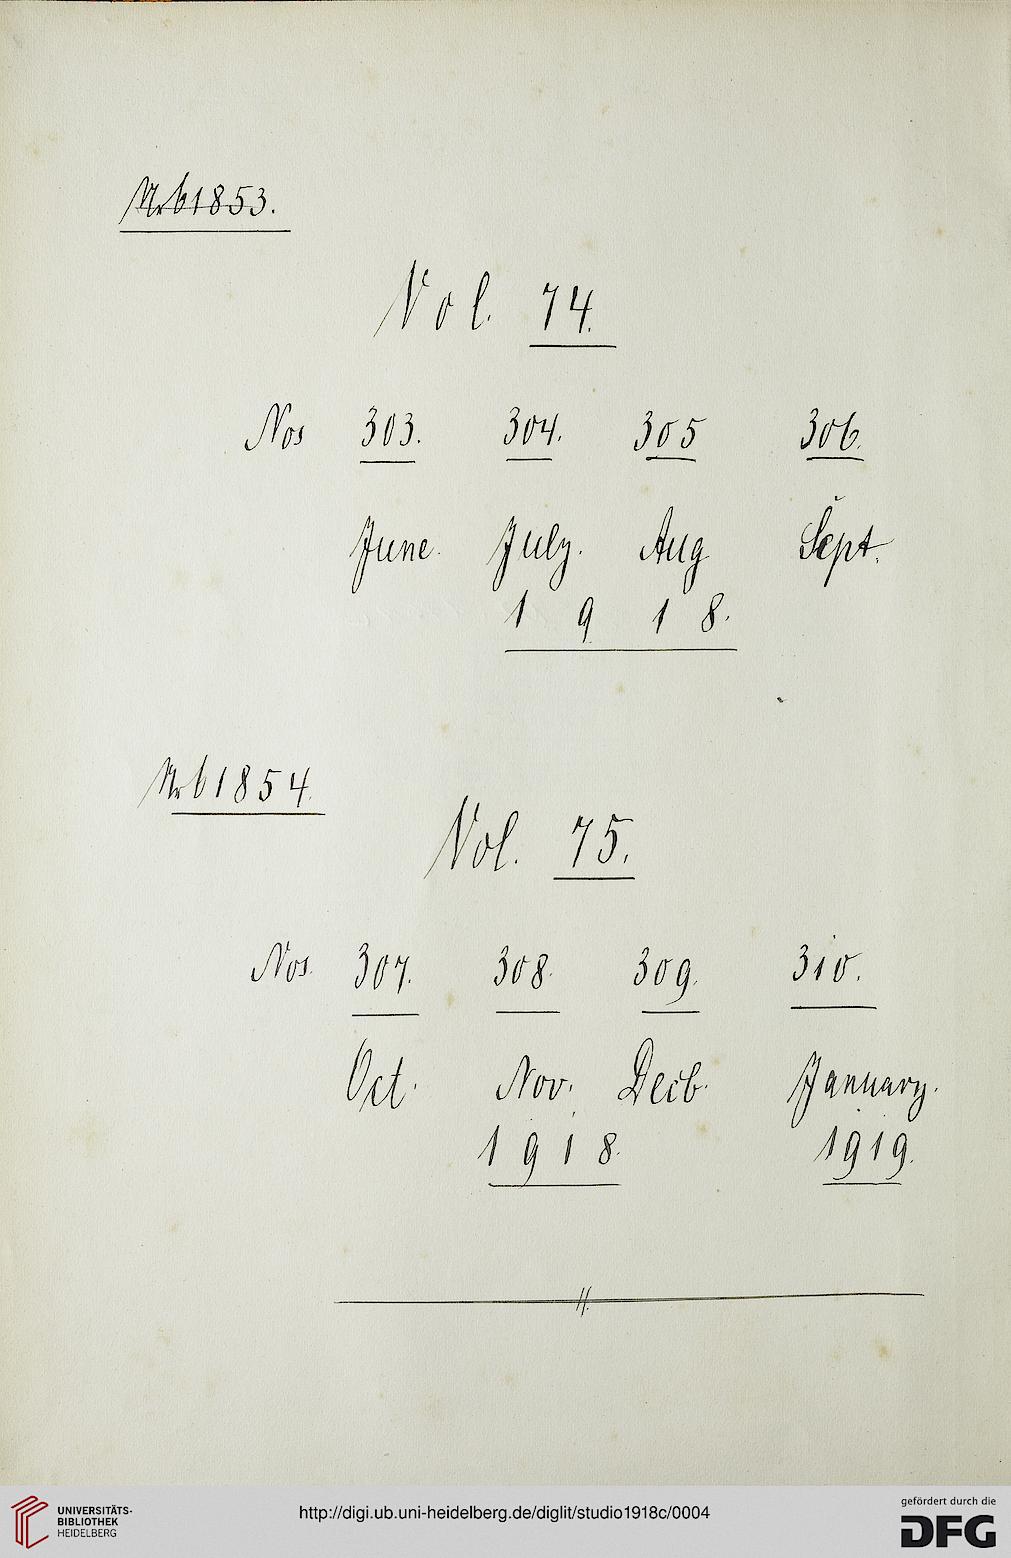 Nr 61853.
Vol. 74.
Nos 303. 304. 305 306.
June. July. Aug Sept.
1 9 1 8.
Nr 61854.
Vol. 75.
Nos. 307. 308. 309. 310.
Oct. Nov. Decb. January.
1 9 1 8. 1919.
UNIVERSITÄTS-
BIBLIOTHEK
HEIDELBERG
http://digi.ub.uni-heidelberg.de/diglit/studio1918c/0004
gefördert durch die
DFG